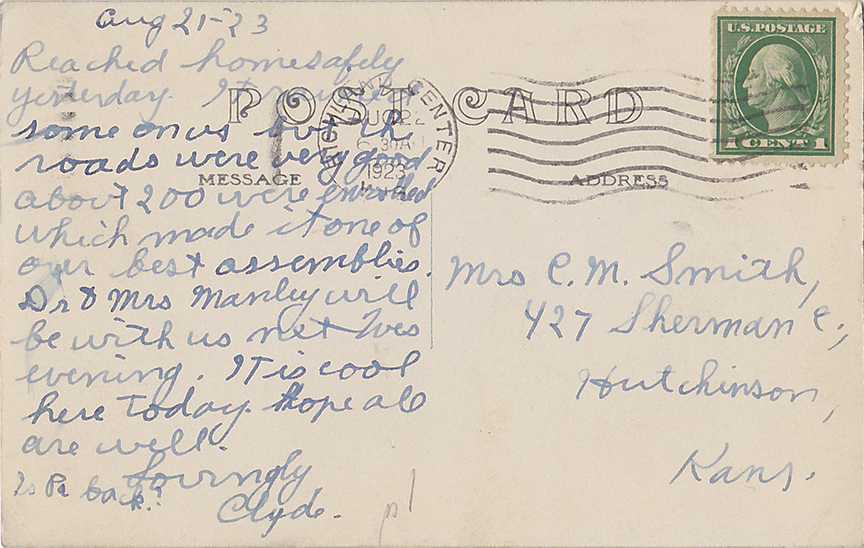 Aug 21-23
Reached home safely
yesterday. It rained
some on us but the
roads were very good
about 200 were enrolled
which made it one of
our best assemblies.
Dr & Mrs Manley will
be with us net Wes
evening. It is cool
here today. Hope all
are well.
Lovingly
Clyde.
Is Pa back?
POST CARD
MESSAGE
ADDRESS
RICHLAND CENTER
AUG 22
6 30 A
1923
WIS
U.S. POSTAGE
1 CENT 1
Mrs C. M. Smith,
427 Sherman E.,
Hutchinson,
Kans.